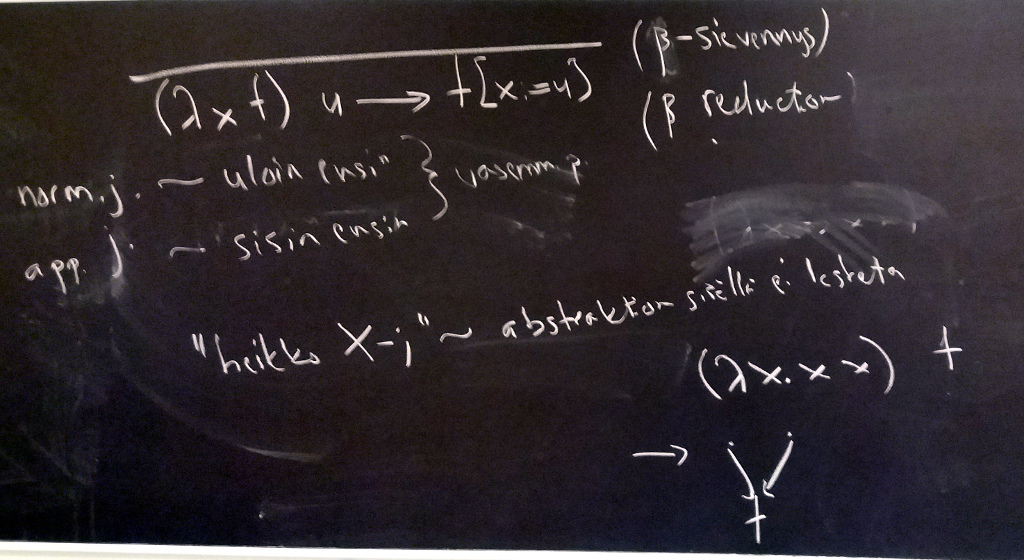 (β-sievennys)
(λx t) u → t[x:=u]
(β reductor)
norm.j. ~ uloin ensin } vasemm. p.
app. j. ~ sisin ensin
"heikko X-j" ~ abstraktion sisällä ei lasketa
(λx. x x) t
→
t